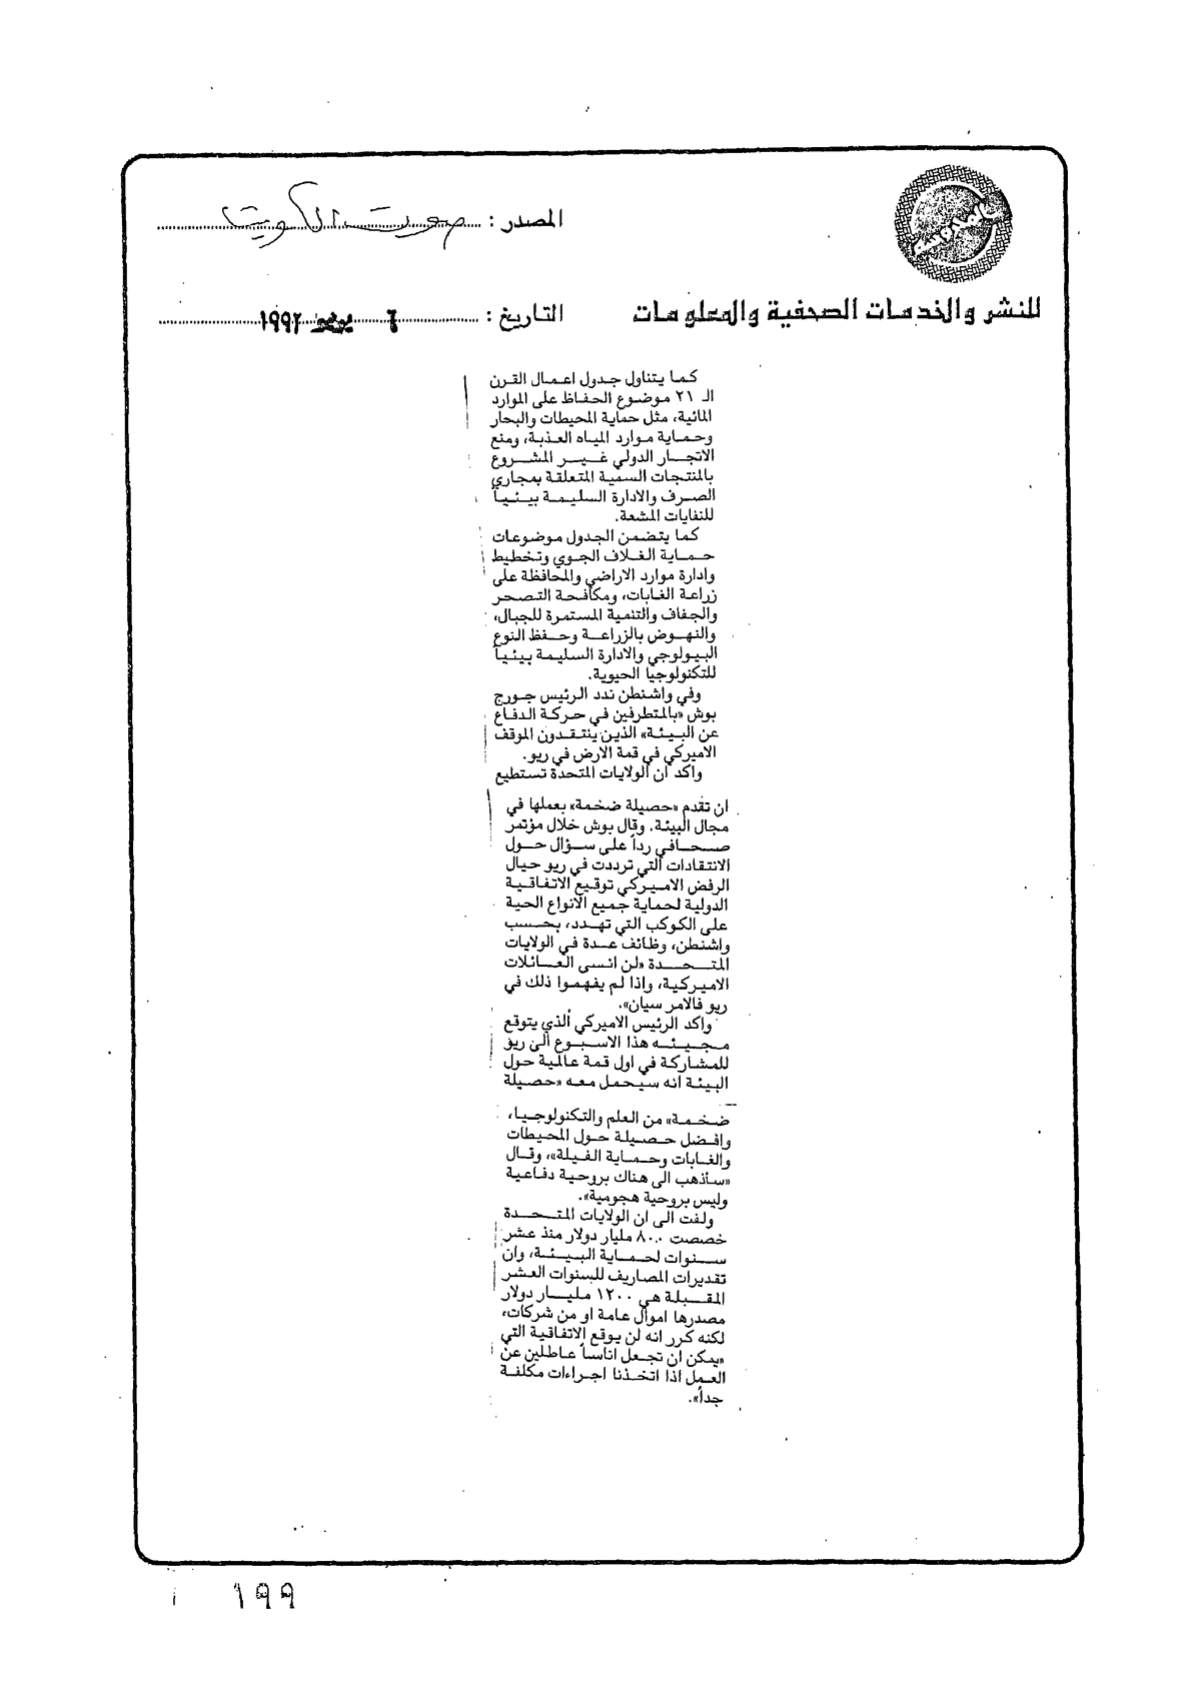 المصدر : صوت الكويت
للنشر والخدمات الصحفية والمعلومات
التاريخ : ٦ يونيو ١٩٩٢
كما يتناول جدول اعمال القرن
الـ ٢١ موضوع الحفاظ على الموارد
المائية، مثل حماية المحيطات والبحار
وحماية موارد المياه العذبة، ومنع
الاتجار الدولي غير المشروع
بالمنتجات السمية المتعلقة بمجاري
الصرف والادارة السليمة بيئياً
للنفايات المشعة.
كما يتضمن الجدول موضوعات
حماية الغلاف الجوي وتخطيط
وادارة موارد الاراضي والمحافظة على
زراعة الغابات، ومكافحة التصحر
والجفاف والتنمية المستمرة للجبال،
والنهوض بالزراعة وحفظ النوع
البيولوجي والادارة السليمة بيئياً
للتكنولوجيا الحيوية.
وفي واشنطن ندد الرئيس جورج
بوش «بالمتطرفين في حركة الدفاع
عن البيئة» الذين ينتقدون الموقف
الاميركي في قمة الارض في ريو.
واكد ان الولايات المتحدة تستطيع
ان تقدم «حصيلة ضخمة» بعملها في
مجال البيئة. وقال بوش خلال مؤتمر
صحافي رداً على سؤال حول
الانتقادات التي ترددت في ريو حيال
الرفض الاميركي توقيع الاتفاقية
الدولية لحماية جميع الانواع الحية
على الكوكب التي تهدد، بحسب
واشنطن، وظائف عدة في الولايات
المتحدة «لن انسى العائلات
الاميركية، واذا لم يفهموا ذلك في
ريو فالامر سيان».
واكد الرئيس الاميركي الذي يتوقع
مجيئه هذا الاسبوع الى ريو
للمشاركة في اول قمة عالمية حول
البيئة انه سيحمل معه «حصيلة
ضخمة» من العلم والتكنولوجيا،
وافضل حصيلة حول المحيطات
والغابات وحماية الفيلة»، وقال
«سأذهب الى هناك بروحية دفاعية
وليس بروحية هجومية».
ولفت الى ان الولايات المتحدة
خصصت ٨٠٠ مليار دولار منذ عشر
سنوات لحماية البيئة، وان
تقديرات المصاريف للسنوات العشر
المقبلة هي ١٢٠٠ مليار دولار
مصدرها اموال عامة او من شركات،
لكنه كرر انه لن يوقع الاتفاقية التي
«يمكن ان تجعل اناساً عاطلين عن
العمل اذا اتخذنا اجراءات مكلفة
جداً».
١٩٩